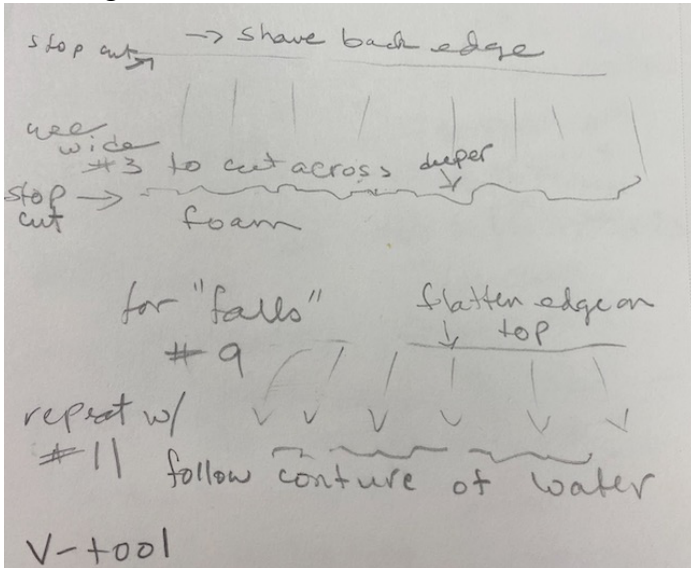 stop cut → shave back edge
use wide
#3 to cut across deeper
stop cut →
foam
for "falls"
#9
flatten edge on top
repeat w/
#11
follow conture of water
V-tool